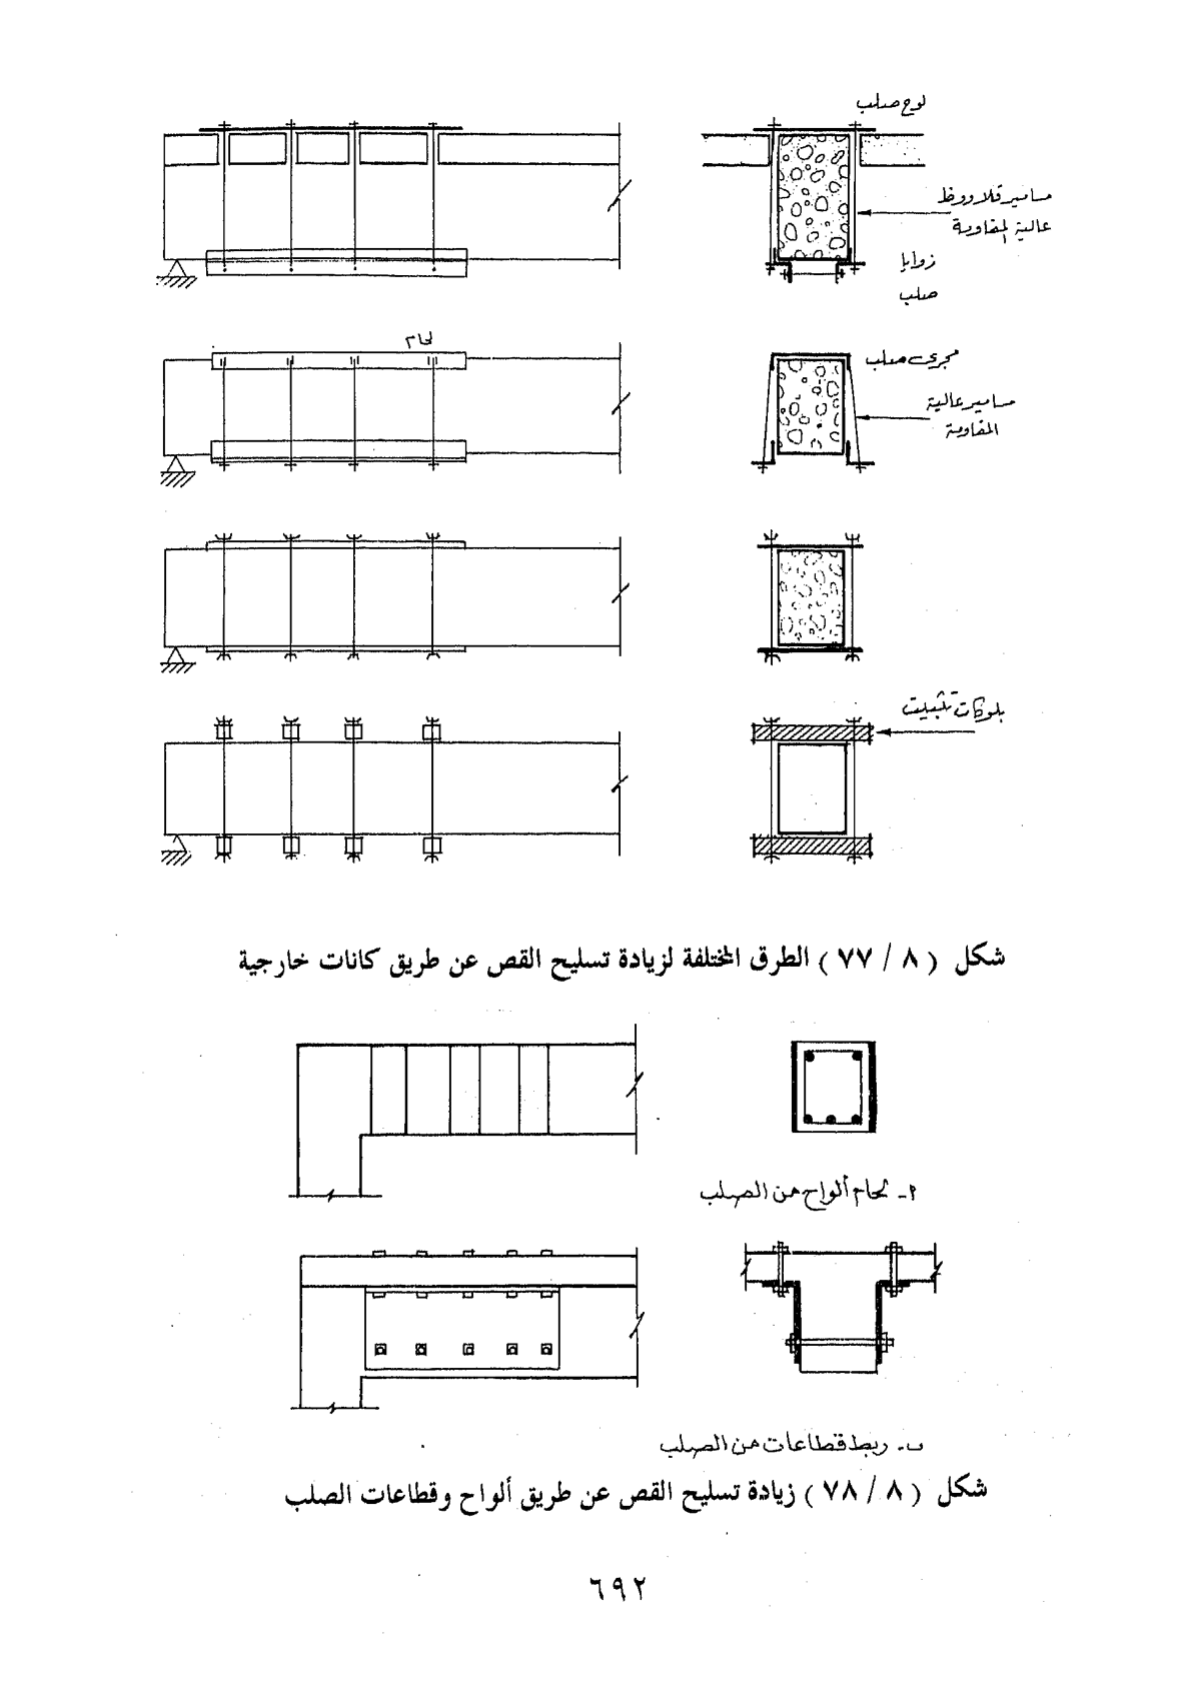 لوح صلب
مسامير قلاووظ
عالية المقاومة
زوايا
صلب
لحام
مجرى صلب
مسامير عالية
المقاومة
بلوكات تثبيت
شكل ( ٨ / ٧٧ ) الطرق المختلفة لزيادة تسليح القص عن طريق كانات خارجية
أ- لحام ألواح من الصلب
ب- ربط قطاعات من الصلب
شكل ( ٨ / ٧٨ ) زيادة تسليح القص عن طريق ألواح وقطاعات الصلب
٦٩٢